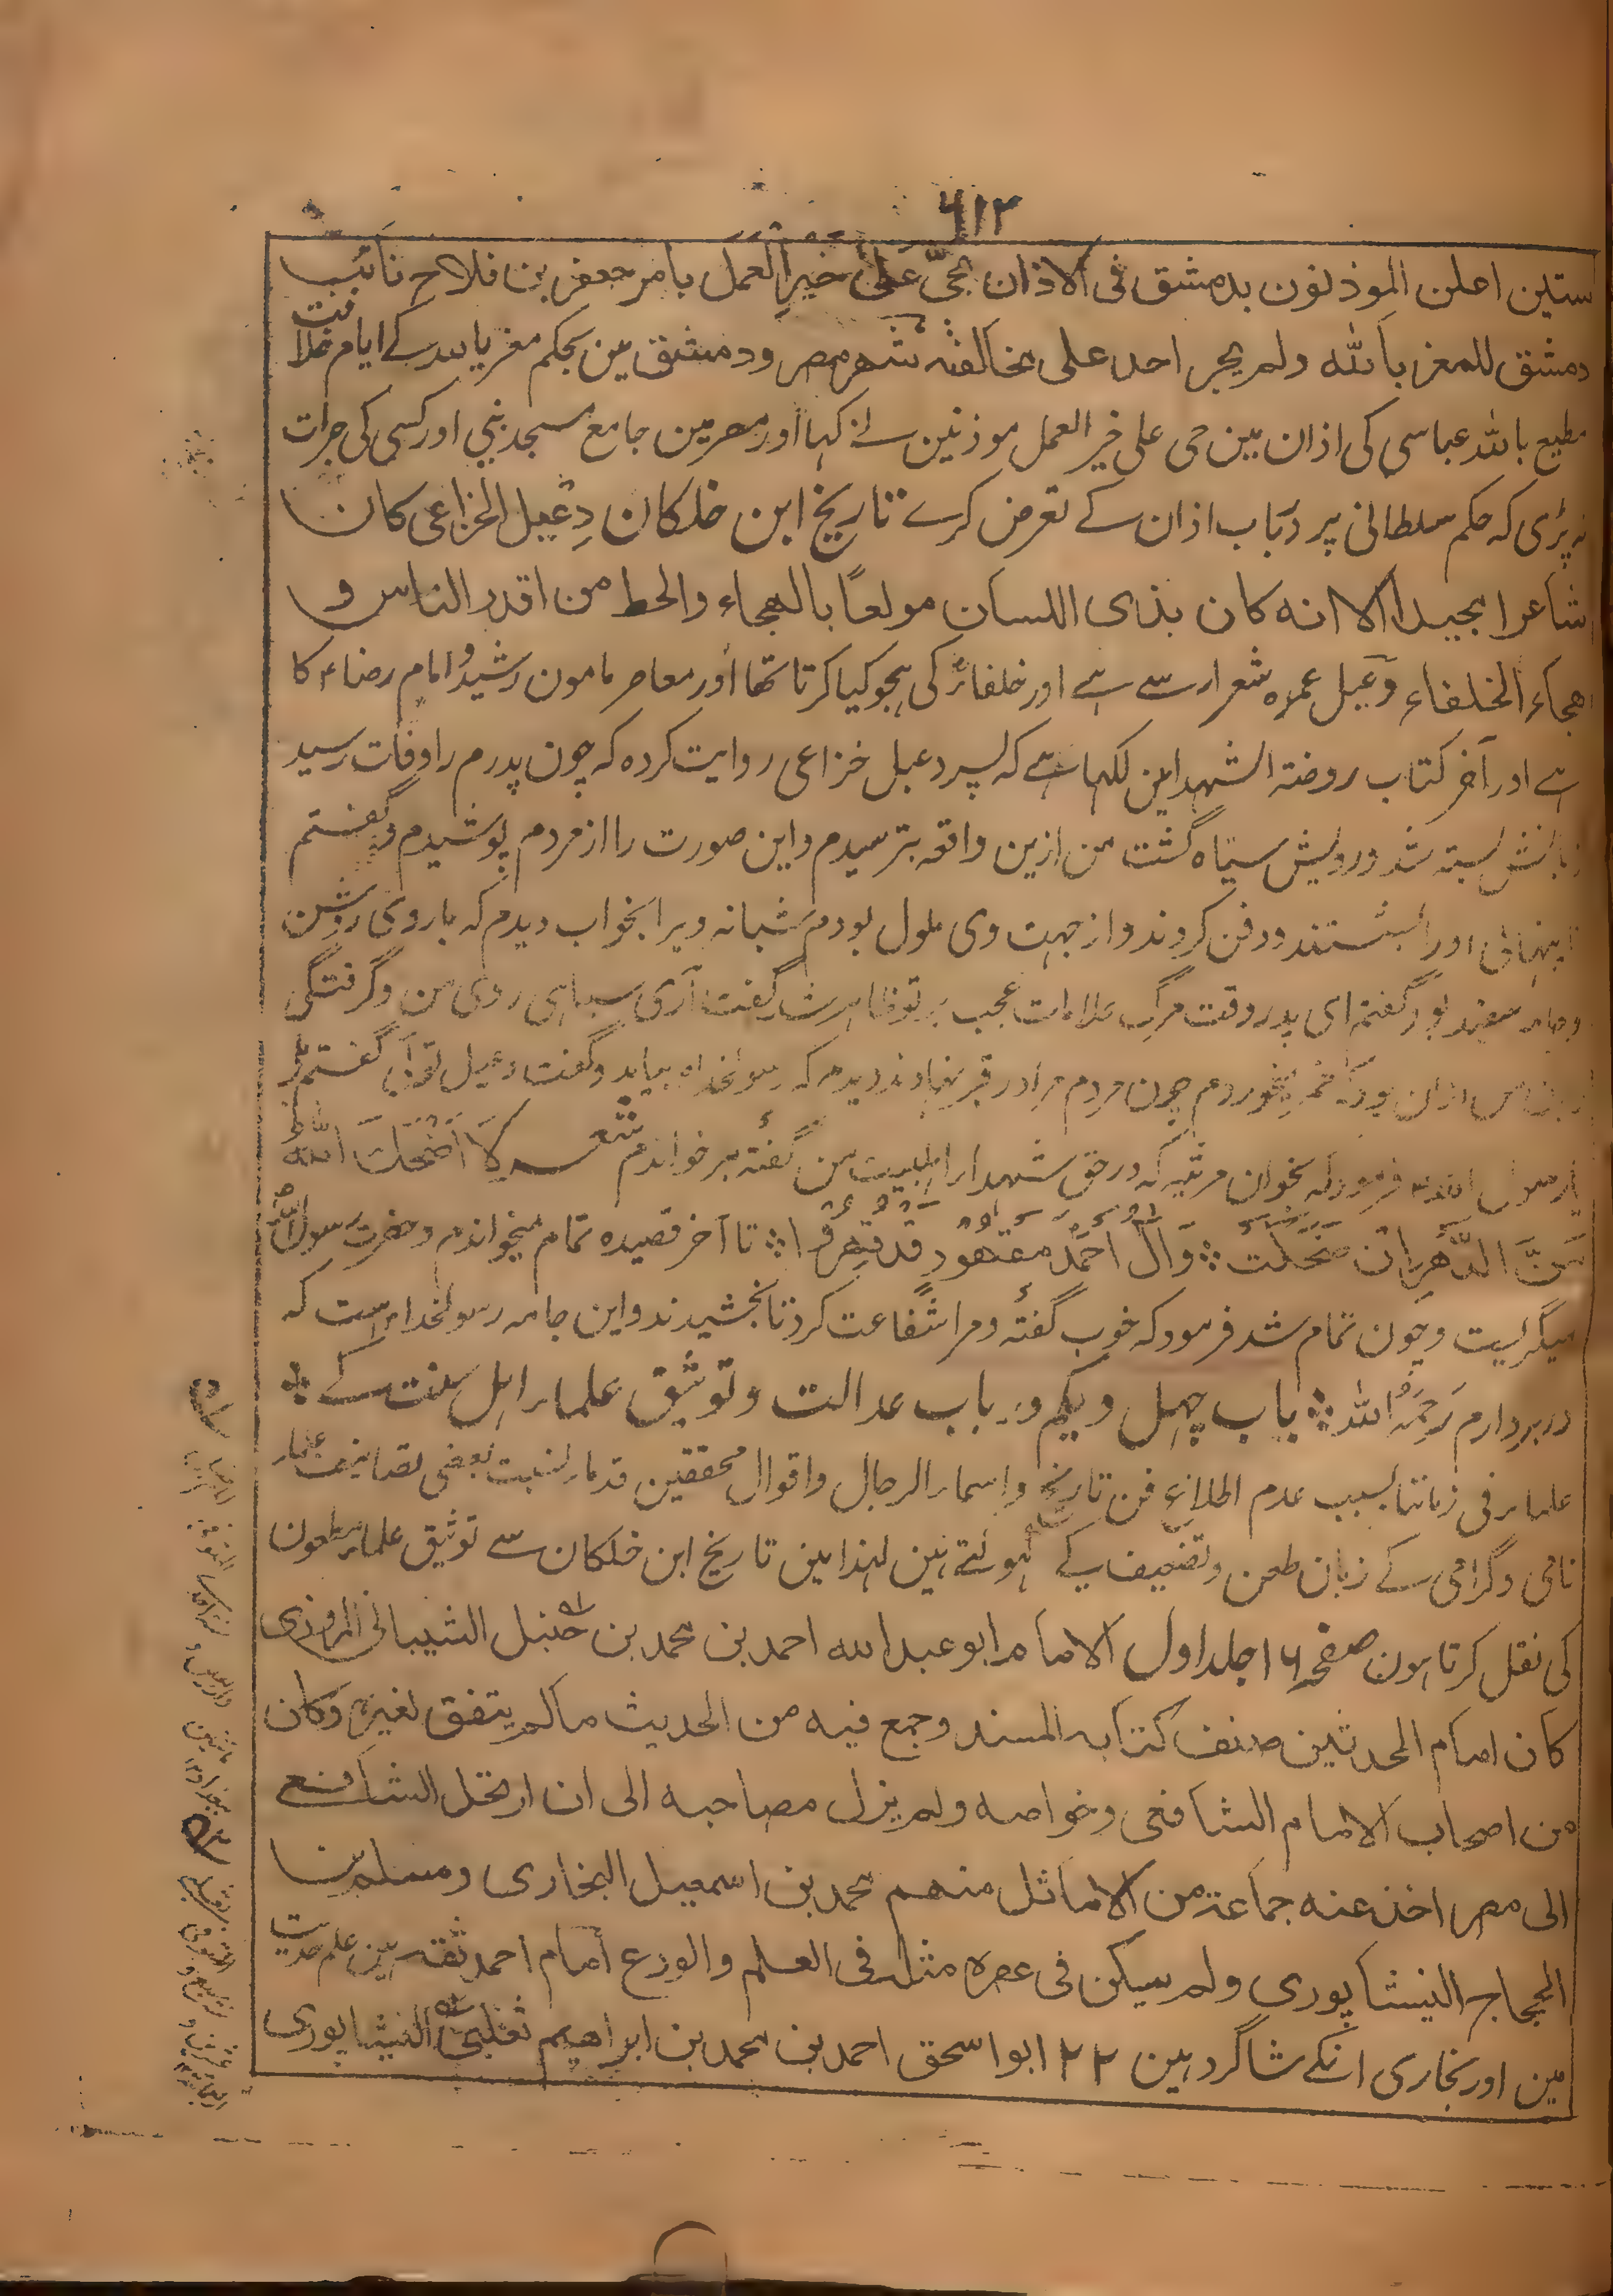 ٦١٢
ستين اعلن الموذنون بدمشق فی الاذان بحیّ علیٰ خیرالعمل بامر جعفر بن فلاح نائب
دمشق للمعز باللہ ولم یجر احد علی مخالفتہ شہر مصر ودمشق مین بحکم معز باللہ کے ایام خلافت
مطیع باللہ عباسی کی اذان مین حی علی خیر العمل موذنین نے کہا اور مصر مین جامع مسجد بنی اور کسی کی جرات
نہ پڑی کہ حکم سلطانی پر درباب اذان کے تعرض کرے تاریخ ابن خلکان دِعْبِل الخزاعی کان
شاعرا مجیدا الا انہ کان بذی اللسان مولعًا بالھجاء والحط من اقدر الناس و
ھجاء الخلفاء دعبل عمدہ شعرار سے ہے اور خلفاءُ کی ہجو کیا کرتا تھا اور معاصر مامون رشید و امام رضاء کا
ہے اور آخر کتاب روضتہ الشہدا مین لکہا ہے کہ پسر دعبل خزاعی روایت کردہ کہ چون پدرم را وفات رسید
زبانش بستہ شد و رویش سیاہ گشت من ازین واقعہ بترسیدم و این صورت را از مردم پوشیدم و گفتم
تا پنہانی اورا بشستند و دفن کردند و از جہت وی ملول بودم شبانہ ویرا بخواب دیدم کہ با روی روشن
و جامہ سفید بود گفتم ای پدر وقت مرگ علامات عجب بر تو ظاہر شد گفت آری سیاہی روی من و گرفتگی
زبان من ازان بود کہ خمر میخوردم چون مردم مرا در قبر نہادند دیدم کہ رسولخداء بیامد و گفت دعبل توئی گفتم بلی
یا رسول اللہ فرمود کہ بخوان مرثیہ کہ در حق شہدار اہلبیت من گفتہ برخواندم شعر لَا اَضْحَكَ اللهُ
سِنَّ الدَّهْرِ اِنْ ضَحِکَتْ ؞ وَاٰلُ اَحْمَدَ مقهُور قَد قُهِرُوا ؞ تا آخر قصیدہ تمام میخواندم و حضرت رسول اللہ
میگریست و چون تمام شد فرمود کہ خوب گفتہ و مرا شفاعت کرد تا بخشیدند و این جامہ رسولخداء است کہ
در بر دارم رَحِمَہُ اللہ ؞ باب چہل ویکم درباب عدالت و توثیق علمار اہل سنت کے ؞
علمار فی زماننا بسبب عدم اطلاع فن تاریخ و اسمار الرجال و اقوال محققین قدمار نسبت بعضی تصانیف علمار
نامی و گرامی کے زبان طعن و تضعیف کے ہوئے ہین لہذا مین تاریخ ابن خلکان سے توثیق علمار مطعون
کی نقل کرتا ہون صفحہ ١٦ جلد اول الامام ابو عبداللہ احمد بن محمد بن حنبل الشیبانی المروزی
کان امام المحدثین صنف کتابہ المسند وجمع فیہ من الحدیث مالم یتفق لغیرہ وکان
من اصحاب الامام الشافعی وخواصہ ولم یزل مصاحبہ الی ان ارتحل الشافعی
الی مصر اخذ عنہ جماعۃ من الاماثل منھم محمد بن اسمعیل البخاری ومسلم بن
الحجاج النیشاپوری ولم یکن فی عصرہ مثلہ فی العلم والورع امام احمد ثقہ ہین علم حدیث
مین اور بخاری انکے شاگرد ہین ٢٢ ابو اسحق احمد بن محمد بن ابراھیم ثعلبی النیشاپوری